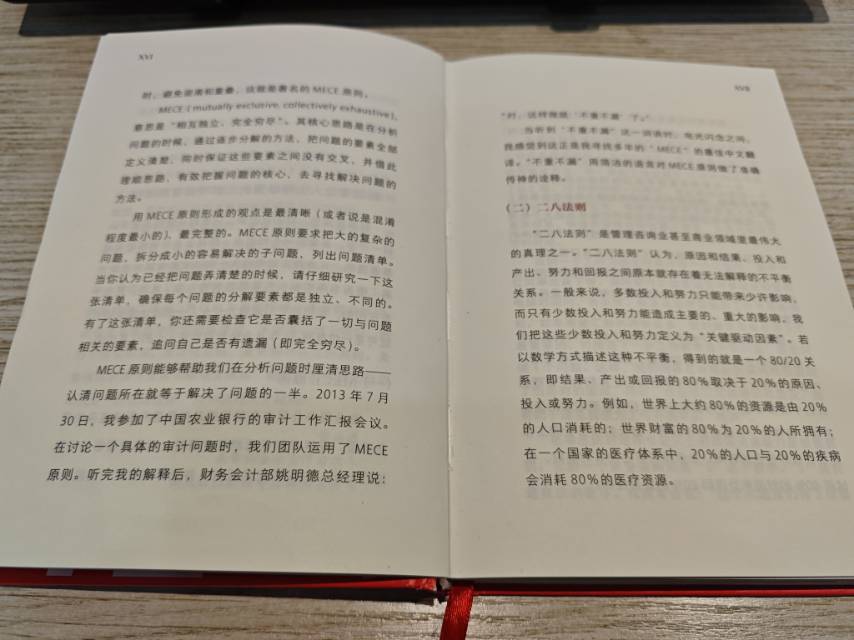 XVI
时，避免混淆和重叠，这就是著名的 MECE 原则。
MECE（mutually exclusive, collectively exhaustive），
意思是“相互独立、完全穷尽”。其核心思路是在分析
问题的时候，通过逐步分解的方法，把问题的要素全部
定义清楚，同时保证这些要素之间没有交叉，并借此
理能思路，有效把握问题的核心，去寻找解决问题的
方法。
用 MECE 原则形成的观点是最清晰（或者说是混淆
程度最小的）、最完整的。MECE 原则要求把大的复杂的
问题，拆分成小的容易解决的子问题，列出问题清单。
当你认为已经把问题弄清楚的时候，请仔细研究一下这
张清单，确保每个问题的分解要素都是独立、不同的。
有了这张清单，你还需要检查它是否囊括了一切与问题
相关的要素，追问自己是否有遗漏（即完全穷尽）。
MECE 原则能够帮助我们在分析问题时厘清思路——
认清问题所在就等于解决了问题的一半。2013 年 7 月
30 日，我参加了中国农业银行的审计工作汇报会议。
在讨论一个具体的审计问题时，我们团队运用了 MECE
原则。听完我的解释后，财务会计部姚明德总经理说：
XVII
“对，这样做就‘不重不漏’了。”
当听到“不重不漏”这一词语时，电光闪念之间，
我感觉到这正是我寻找多年的“MECE”的最佳中文翻
译。“不重不漏”用简洁的语言对 MECE 原则做了准确
传神的诠释。
（二）二八法则
“二八法则”是管理咨询业甚至商业领域里最伟大
的真理之一。“二八法则”认为，原因和结果、投入和
产出、努力和回报之间原本就存在着无法解释的不平衡
关系。一般来说，多数投入和努力只能带来少许影响，
而只有少数投入和努力能造成主要的、重大的影响，我
们把这些少数投入和努力定义为“关键驱动因素”。若
以数学方式描述这种不平衡，得到的就是一个 80/20 关
系，即结果、产出或回报的 80% 取决于 20% 的原因、
投入或努力。例如，世界上大约 80% 的资源是由 20%
的人口消耗的；世界财富的 80% 为 20% 的人所拥有；
在一个国家的医疗体系中，20% 的人口与 20% 的疾病
会消耗 80% 的医疗资源。